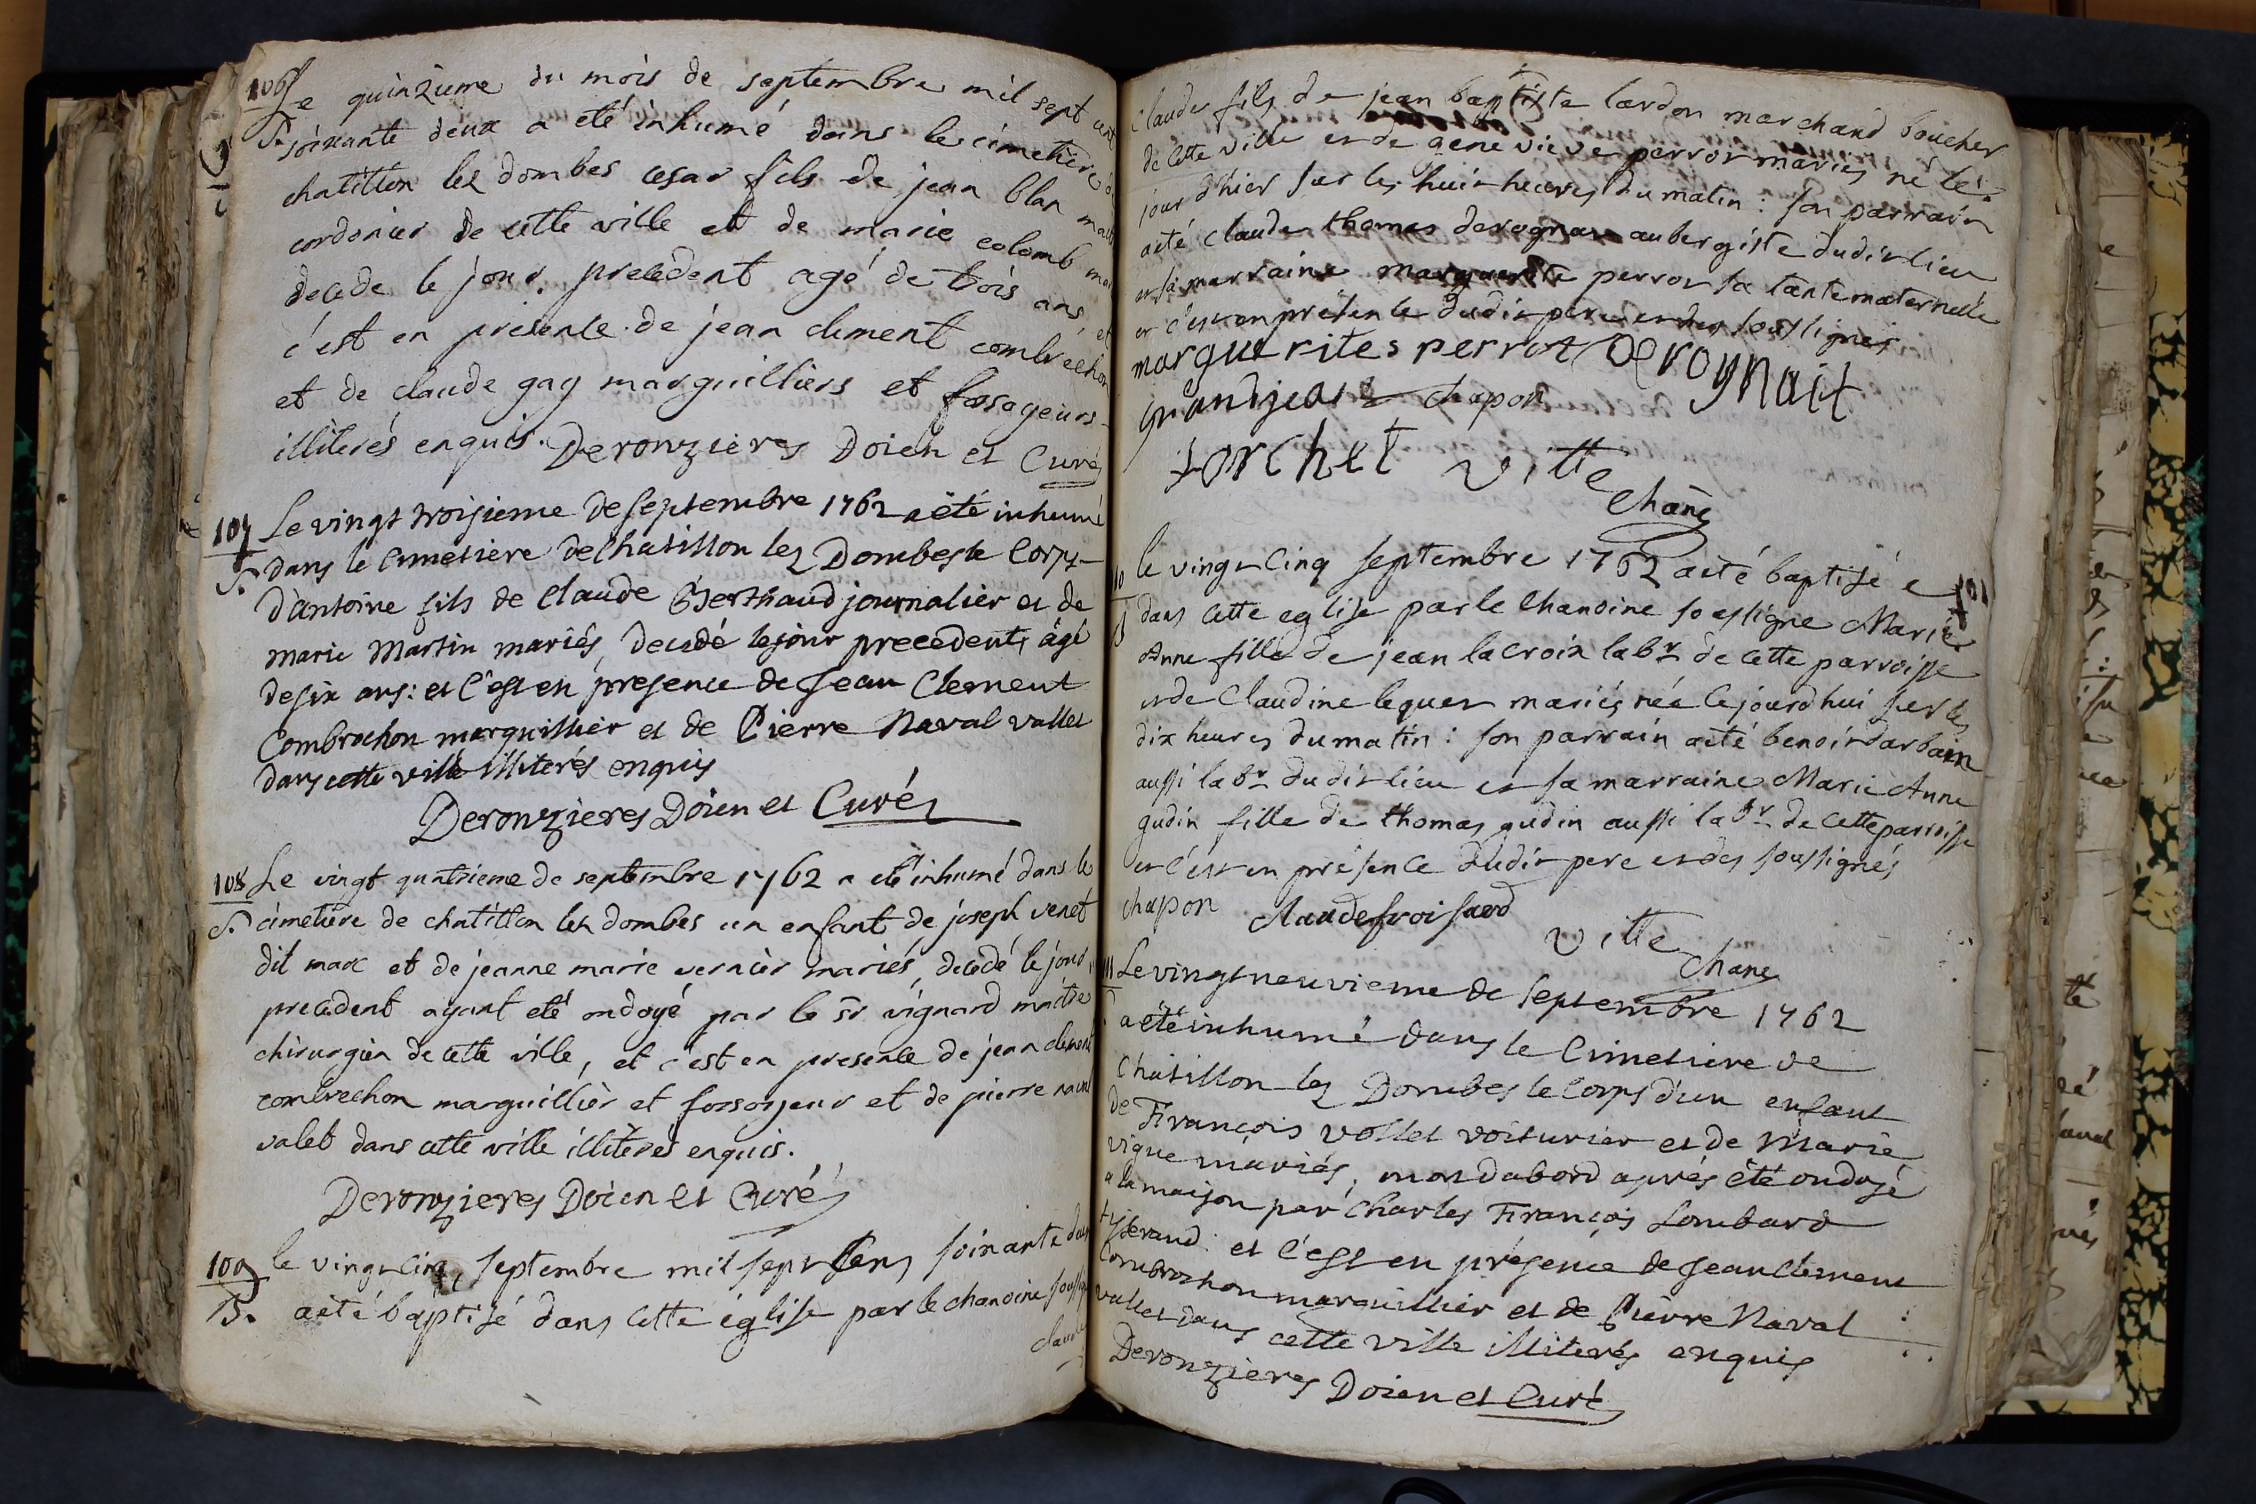 106 Le quinzieme du mois de septembre mil sept cent
S. soixante deux a eté inhumé dans le cimetiere de
chatillon lez dombes cesar fils de jean blan maitre
cordonier de cette ville et de marie colomb
decede le jour precedent agé de trois ans, et
c'est en presence de jean clement combrechon
et de claude gay marguilliers et fosoyeurs
illiterés enquis. Deronzieres Doien et Curé
107 Le vingt troisieme de septembre 1762 a été inhumé
S. dans le cimetiere de Chatillon lez Dombes le Corps
d'antoine fils de Claude Berthaud journalier et de
marie Martin mariés, decedé le jour precedent, âgé
de six ans: et c'est en presence de Jean Clement
Combrochon marguillier et de Pierre Naval vallet
dans cette ville illiterés enquis
Deronzieres Doien et Curé
108 Le vingt quatrieme de septembre 1762 a eté inhumé dans le
S. cimetiere de chatillon les dombes un enfant de joseph venet
dit marc et de jeanne marie vernier mariés, decedé le jour
precedent ayant eté ondoyé par le sr vignard maitre
chirurgien de cette ville, et c'est en presence de jean clement
combrechon marguillier et fossoyeur et de pierre naval
valet dans cette ville illiterés enquis.
Deronzieres Doien et Curé
109 le vingt cinq septembre mil sept cens soixante deux
B. a eté baptisé dans cette église par le chanoine soussigné
claude
claude fils de jean baptiste lardon marchand boucher
de cette ville et de genevieve perrot mariés né le
jour d'hier sur les huit heures du matin: son parrain
a eté claude thomas derognat aubergiste dudit lieu
et sa marraine marguerite perrot sa tante maternelle
et c'est en présence dudit pere et des soussignés
marguerites perrot Derognait
grandjean chapon
torchet vitte
Chane
10 le vingt cinq septembre 1762 a eté baptisé e
B dans cette eglise par le chanoine soussigné Marie
Anne fille de jean lacroix labr de cette parroisse
et de Claudine lequer mariés née ce jourdhui sur les
dix heures du matin: son parrain a eté benoit darbain
aussi labr dudit lieu et sa marraine Marie Anne
gudin fille de thomas gudin aussi labr de cette parroisse
et c'est en présence dudit pere et des soussignés
chapon claude froisard
vitte
Chane
111 Le vingt neuvieme de septembre 1762
a été inhumé dans le Cimetiere de
Chatillon lez Dombes le Corps d'un enfant
de François vollet voiturier et de Marie
vigne mariés, mort d'abord après être ondoyé
a la maison par Charles François Lombard
tisserand: et c'est en présence de Jean Clement
Combrochon marguillier et de Pierre Naval
vallet dans cette ville illiterés enquis
Deronzieres Doien et Curé